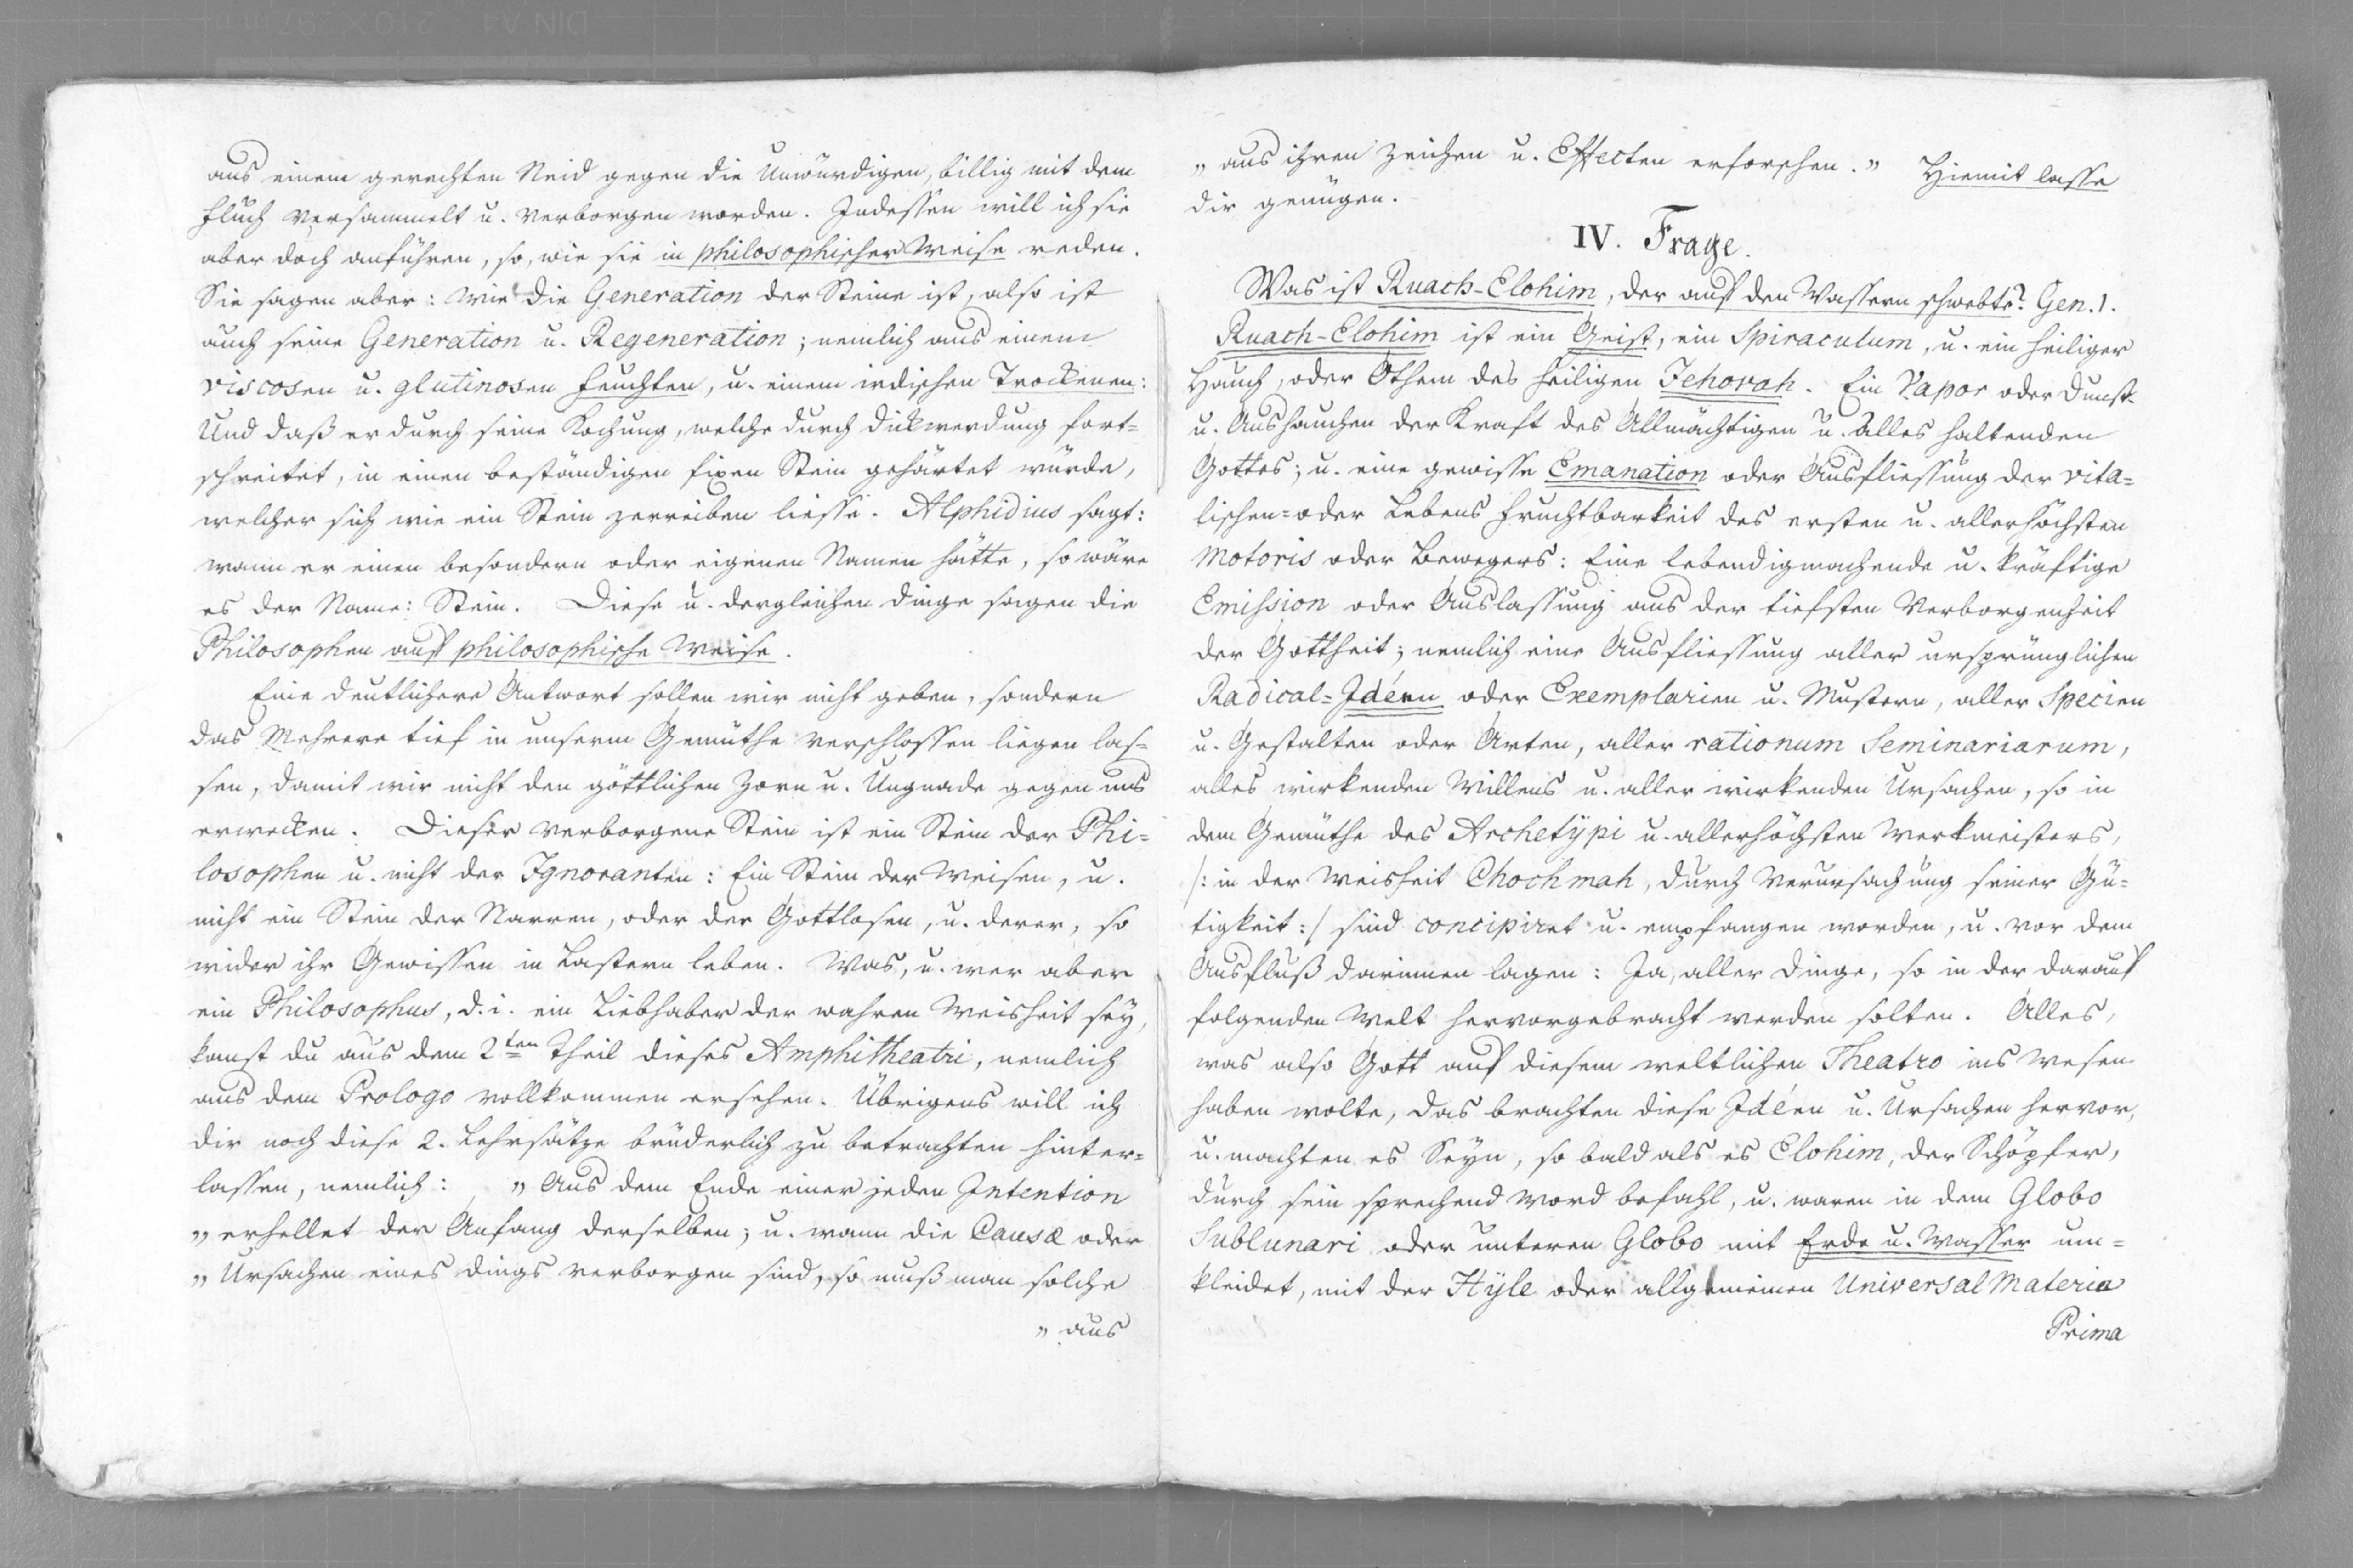 aus einem gerechten Neid gegen die Unwürdigen, billig mit dem
Fluch versammelt u. verborgen worden. Indessen will ich sie
aber doch anführen, so, wie sie in philosophischer Weise reden.
Sie sagen aber: Wie die Generation der Steine ist, also ist
auch seine Generation u. Regeneration; nemlich aus einem
viscosen u. glutinosen Feuchten, u. einem irdischen Trockenen:
Und daß er durch seine Kochung, welche durch Dickwerdung fort=
schreitet, in einen beständigen fixen Stein gehärtet würde,
welcher sich wie ein Stein zerreiben liesse. Alphidius sagt:
wann er einen besondern oder eigenen Namen hätte, so wäre
es der Name: Stein. Diese u. dergleichen Dinge sagen die
Philosophen auf philosophische Weise.
Eine deutlichere Antwort sollen wir nicht geben, sondern
das Mehrere tief in unserm Gemüthe verschlossen liegen las=
sen, damit wir nicht den göttlichen Zorn u. Ungnade gegen uns
erwecken. Dieser verborgene Stein ist ein Stein der Phi=
losophen u. nicht der Ignoranten: Ein Stein der Weisen, u.
nicht ein Stein der Narren, oder der Gottlosen, u. derer, so
wider ihr Gewissen in Lastern leben. Was, u. wer aber
ein Philosophus, d. i. ein Liebhaber der wahren Weisheit sey,
kanst du aus dem 2ten Theil dieses Amphitheatri, nemlich
aus dem Prologo vollkommen ersehen. Übrigens will ich
dir noch diese 2. Lehrsätze brüderlich zu betrachten hinter=
lassen, nemlich: „ Aus dem Ende einer jeden Intention
„ erhellet der Anfang derselben; u. wann die Causæ oder
„ Ursachen eines Dings verborgen sind, so muß man solche
„ aus
„ aus ihren Zeichen u. Effecten erforschen. „ Hiemit lasse
dir genügen.
IV. Frage.
Was ist Ruach-Elohim, der auf den Wassern schwebte? Gen. 1.
Ruach-Elohim ist ein Geist, ein Spiraculum, u. ein heiliger
Hauch, oder Othem des heiligen Jehovah. Ein Vapor oder Dunst
u. Aushauchen der Kraft des Allmächtigen u. alles haltenden
Gottes; u. eine gewisse Emanation oder Ausfliessung der vita=
lischen= oder Lebens Fruchtbarkeit des ersten u. allerhöchsten
Motoris oder Bewegers: Eine lebendigmachende u. kräftige
Emission oder Auslassung aus der tiefsten Verborgenheit
der Gottheit; nemlich eine Ausfliessung aller ursprünglichen
Radical=Idéen oder Exemplarien u. Mustern, aller Specien
u. Gestalten oder Arten, aller rationum Seminariarum,
alles wirkenden Willens u. aller wirkenden Ursachen, so in
dem Gemüthe des Archetÿpi u. allerhöchsten Werkmeisters,
/: in der Weisheit Chochmah, durch Verursachung seiner Gü=
tigkeit :/ sind concipiret u. empfangen worden, u. vor dem
Ausfluß darinnen lagen: Ja, aller Dinge, so in der darauf
folgenden Welt hervorgebracht werden solten. Alles,
was also Gott auf diesem weltlichen Theatro ins Wesen
haben wolte, das brachten diese Idéen u. Ursachen hervor,
u. machten es Seyn, so bald als es Elohim, der Schöpfer,
durch sein sprechend Word befahl, u. waren in dem Globo
Sublunari oder unteren Globo mit Erde u. Wasser um=
kleidet, mit der Hÿle oder allgemeinen Universal Materia
Prima